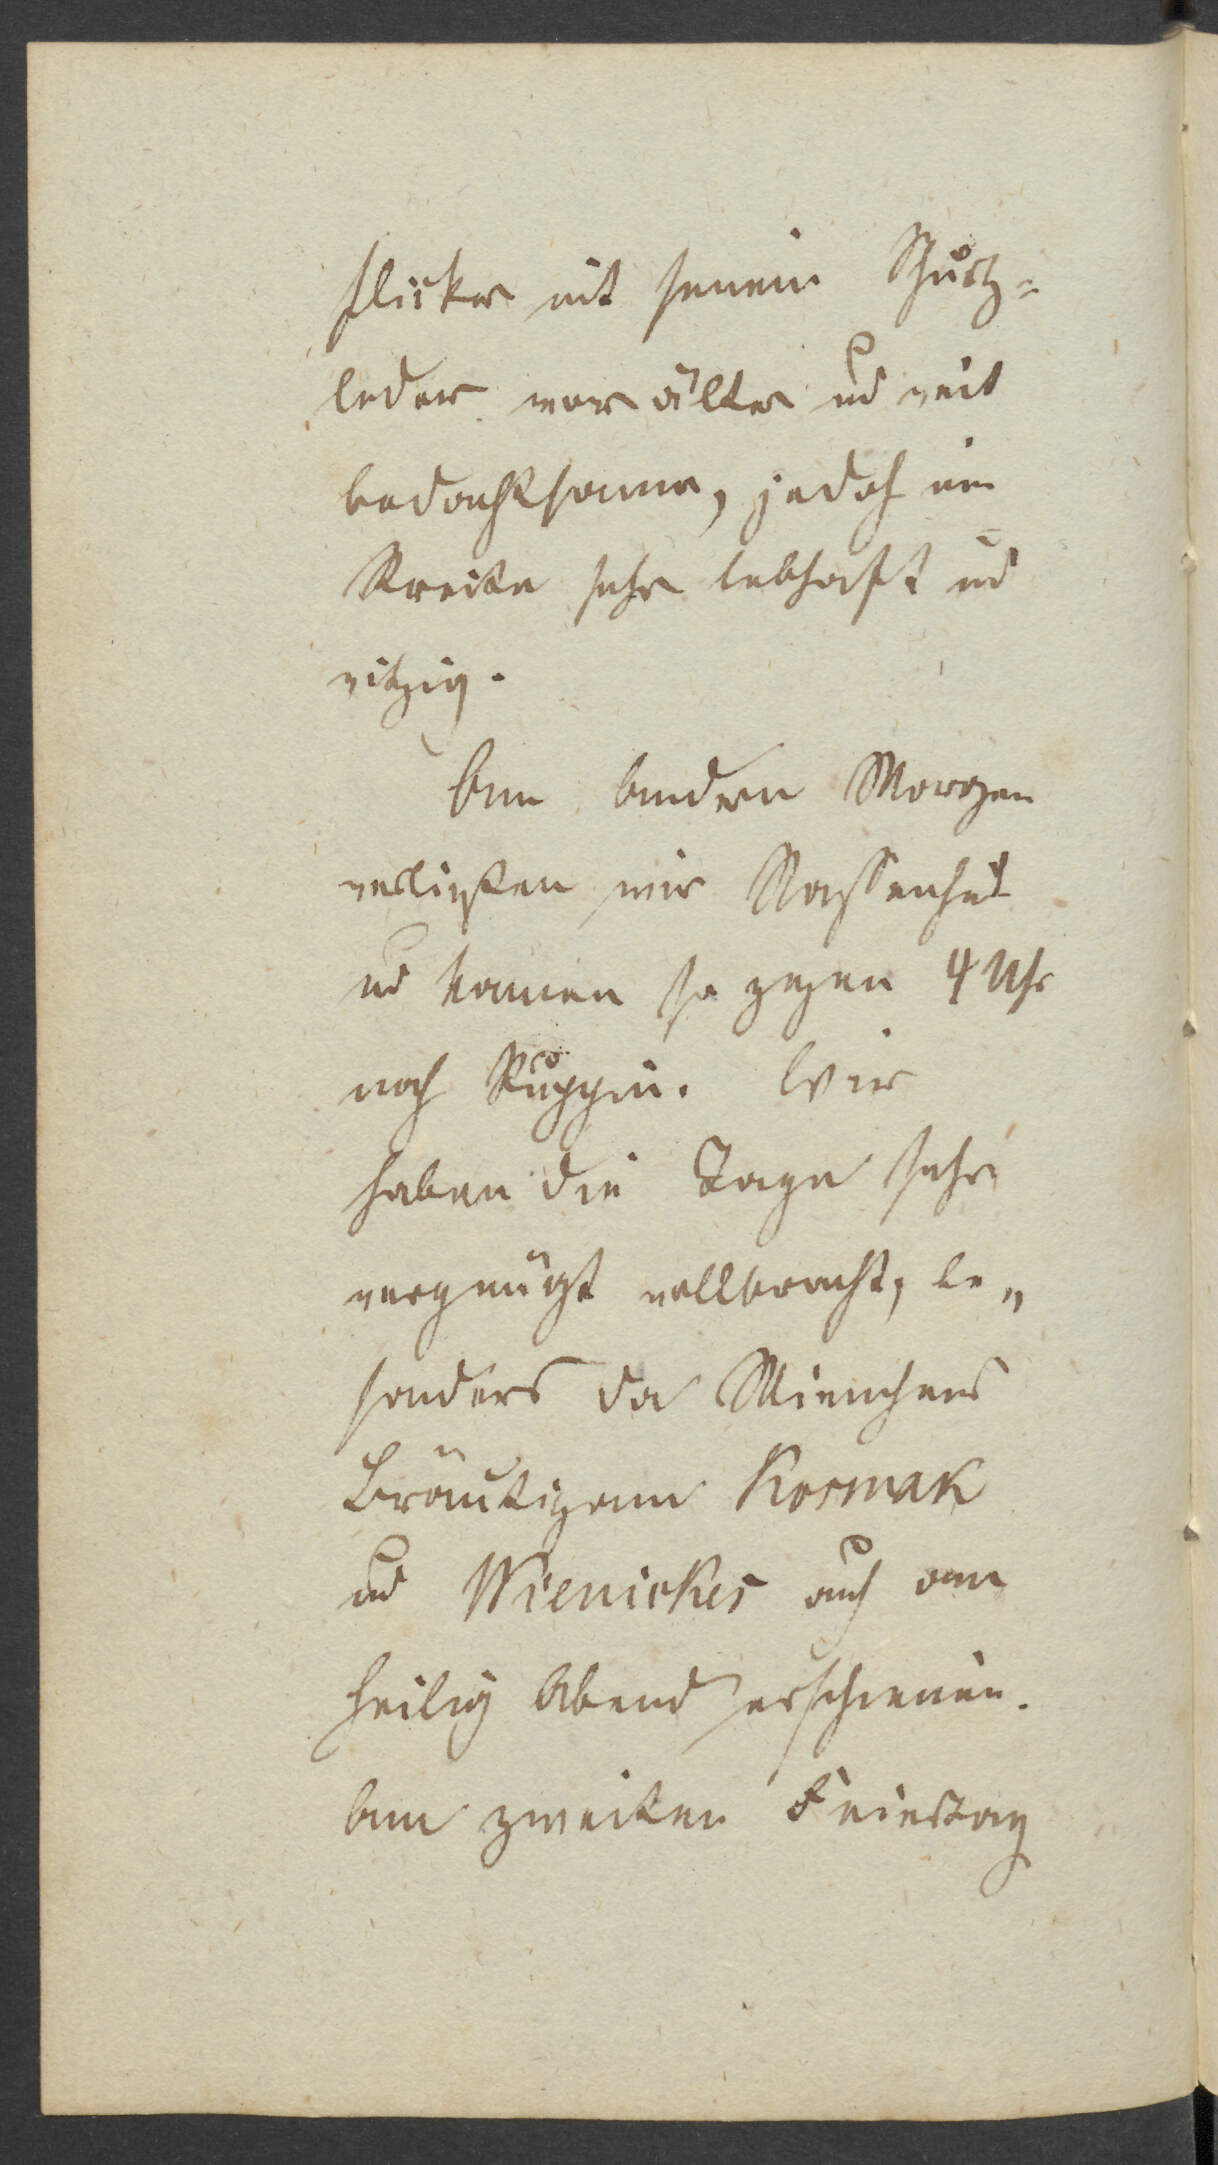 flicker mit seinem Schurz=
leder war älter und mit
bedachtsamer, jedoch im
Streite sehr lebhaft und
witzig.
Am Andern Morgen
verließen wir Nassenheid
und kamen so gegen 4 Uhr
nach Ruppin. Wir
haben die Tage sehr
vergnügt vollbracht, be„
sonders da Minchens
Bräutigam Kosmak
und Wienickes auch am
heilig Abend erschienen.
Am zweiten Feiertag